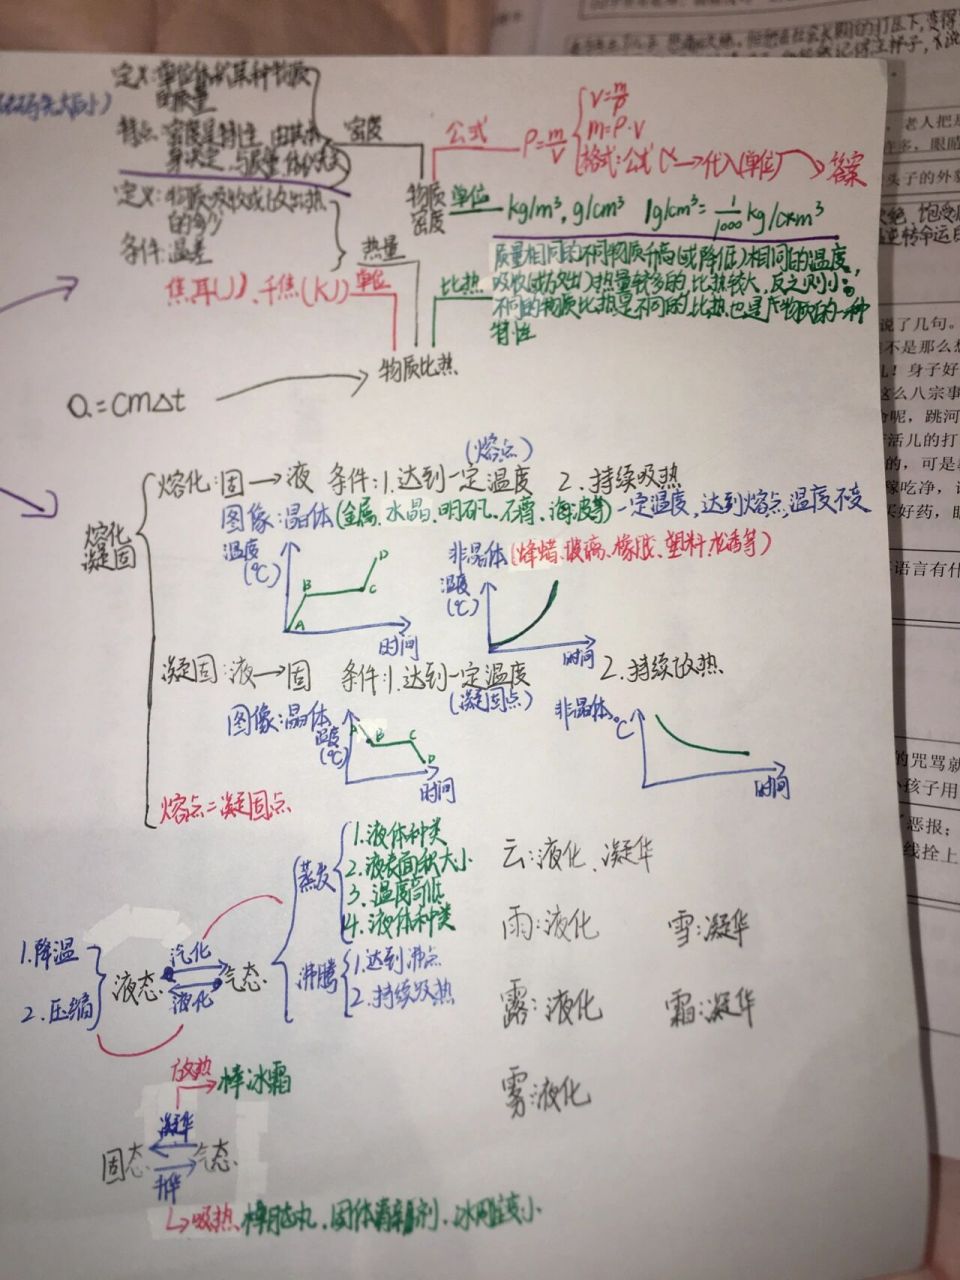 定义:单位体积某种物质
的质量
特点:密度是特性,由其本
身决定,与质量、体积无关
密度
公式
ρ=m/V
V=m/ρ
m=ρ·V
格式:公式→代入(单位)→答案
定义:物质吸收或放出热
的多少
条件:温差
热量
物质
密度
单位 kg/m³,g/cm³ 1g/cm³=1/1000 kg/cm³
焦耳(J)、千焦(KJ) 单位
比热
质量相同的不同物质升高(或降低)相同的温度,
吸收(或放出)热量较多的,比热较大,反之则小。
不同的物质比热是不同的,比热也是物质的一种
特性
物质比热
Q=cm△t
(熔点)
熔化:固→液 条件:1.达到一定温度 2.持续吸热
熔化
凝固
图像:晶体(金属、水晶、明矾、石膏、海波等)一定温度,达到熔点,温度不变
温度
(℃)
A B C D
时间
非晶体(蜂蜡、玻璃、橡胶、塑料、松香等)
温度
(℃)
时间
凝固:液→固 条件:1.达到一定温度 2.持续放热
(凝固点)
图像:晶体
温度
(℃)
B C D
时间
非晶体
℃
时间
熔点=凝固点
蒸发
1.液体种类
2.液表面积大小
3.温度高低
4.液体种类
沸腾
1.达到沸点
2.持续吸热
1.降温
2.压缩
液态
汽化
液化
气态
云:液化、凝华
雨:液化 雪:凝华
露:液化 霜:凝华
雾:液化
放热
冰霜
凝华
固态 气态
升华
吸热
说了几句。
老人把
头子的外貌
语言有什
的咒骂就
小孩子用
恶报;
线拴上